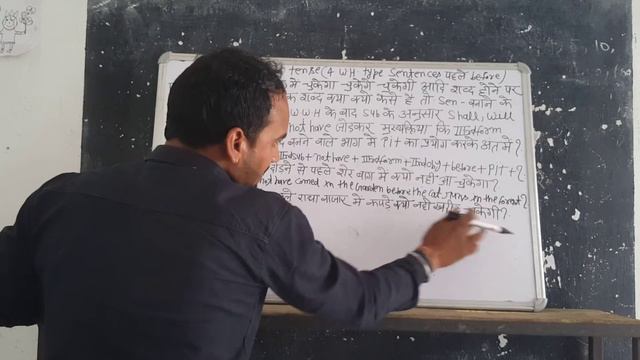 tense (4 W H type Sentences पहले before)
में चुकेगा चुकेगें चुकेगी आदि शब्द होने पर
शब्द क्या क्यों कैसे हैं तो Sen - बनाने के
W H के बाद Sub के अनुसार Shall, Will
not have जोड़कर मुख्यक्रिया कि IIIrd form
बनने वाले भाग में PIT का प्रयोग करके अंत में ?
Sub + not have + IIIrd form + Ind obj + before + PIT + ?
से पहले शेर बाग में क्यों नहीं आ चुकेगा?
not have comed in the Garden before the Cat runs in the forest?
राधा बाजार में कपडे क्यों नहीं चुकेगी?